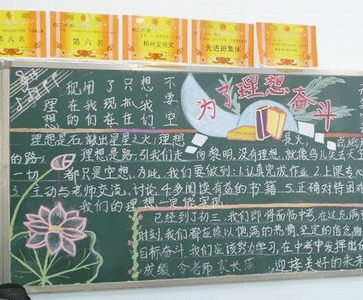 第六名
第六名
精神文明奖
先进班集体
现用了只想不
理在我现抓我要
想的们在住们空
为了理想奋斗
理想是石，敲出星星之火；理想是火，
的路；理想是路，引我们走向黎明。没有理想，就像鸟儿失去
一切都只是空想。为此，我们要做到：1.认真完成作业 2.上课专心
3.主动与老师交流，讨论 4.多阅读有益的书籍 5.正确对待困难
我们的理想一定能实现
已经到了初三，我们即将面临中考，在这
时刻，我们都应该以饱满的热情，坚定的信念
目标奋斗，我们应该努力学习，在中考中发挥出
成绩，令老师家长 迎接美好的未来